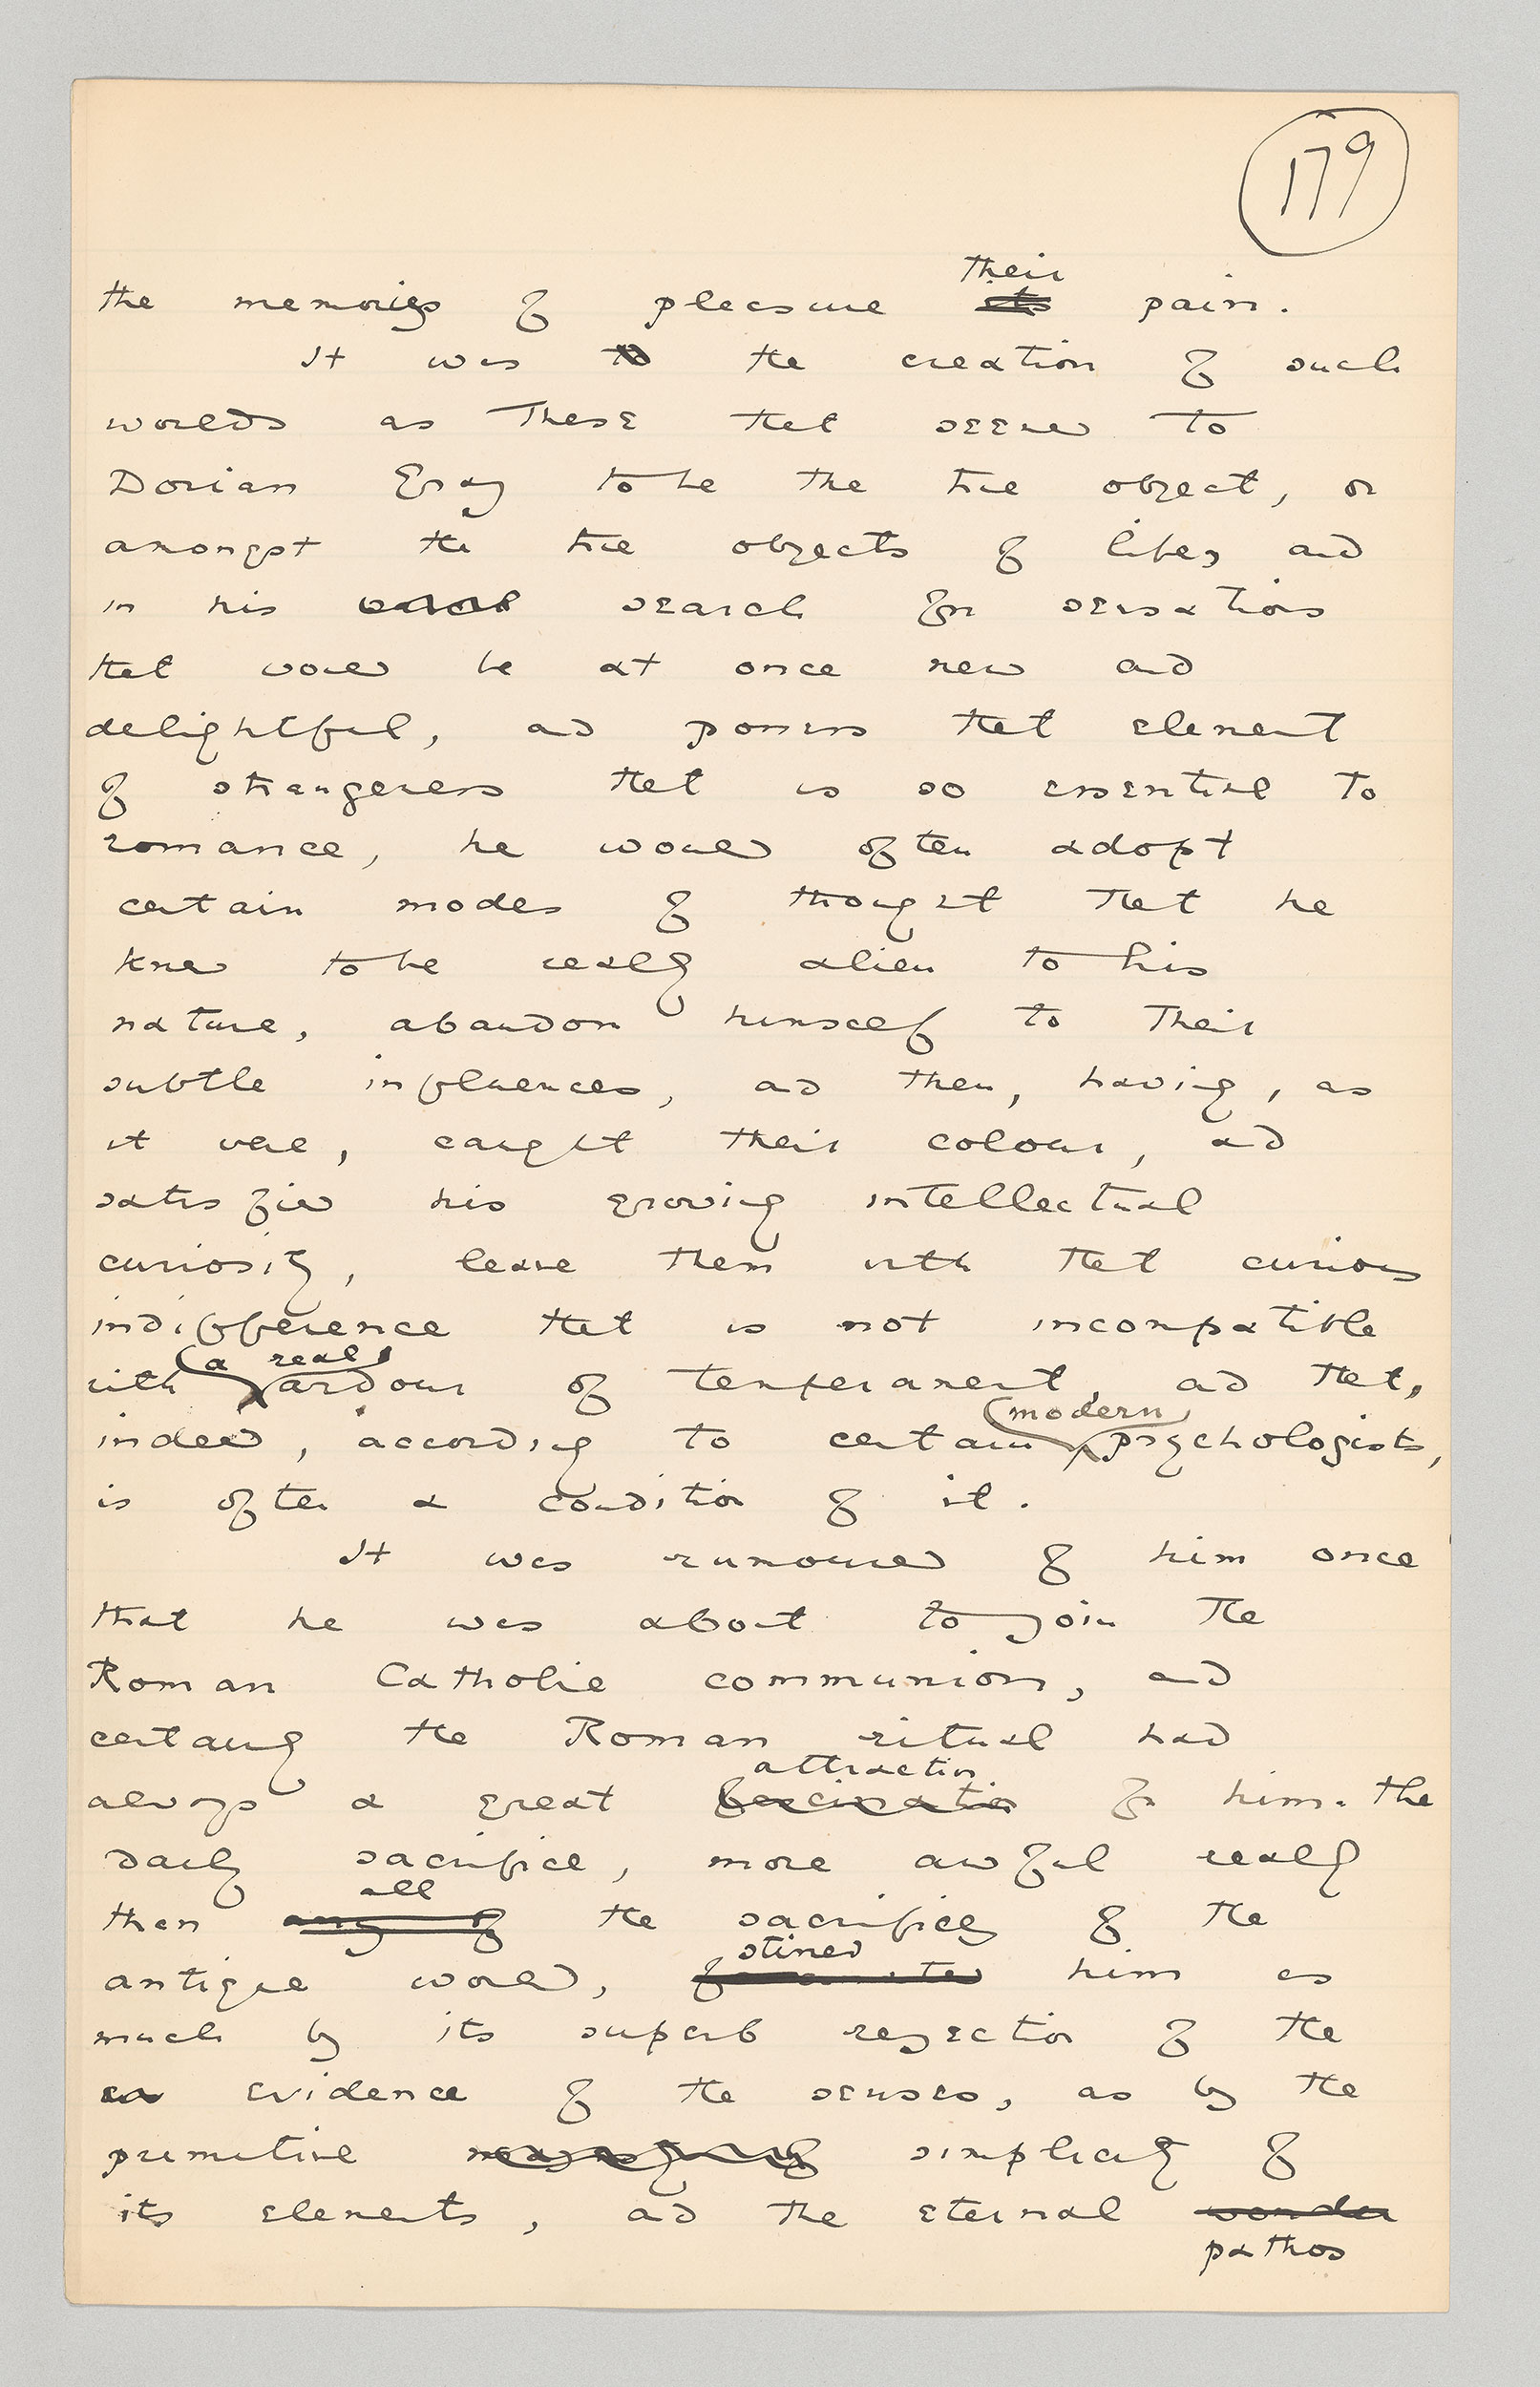 179
the memories of pleasure their its pain.
It was to the creation of such
worlds as these that seemed to
Dorian Gray to be the true object, or
amongst the true objects of life, and
in his search for sensations
that would be at once new and
delightful, and possess that element
of strangeness that is so essential to
romance, he would often adopt
certain modes of thought that he
knew to be really alien to his
nature, abandon himself to their
subtle influences, and then, having, as
it were, caught their colour, and
satisfied his growing intellectual
curiosity, leave them with that curious
indifference that is not incompatible
with a real ardour of temperament, and that,
indeed, according to certain modern psychologists,
is often a condition of it.
It was rumoured of him once
that he was about to join the
Roman Catholic communion, and
certainly the Roman ritual had
always a great attraction fascination for him. The
daily sacrifice, more awful really
than all any of the sacrifices of the
antique world, stirred fascinated him as
much by its superb rejection of the
evidence of the senses, as by the
primitive simplicity of
its elements, and the eternal wonder
pathos